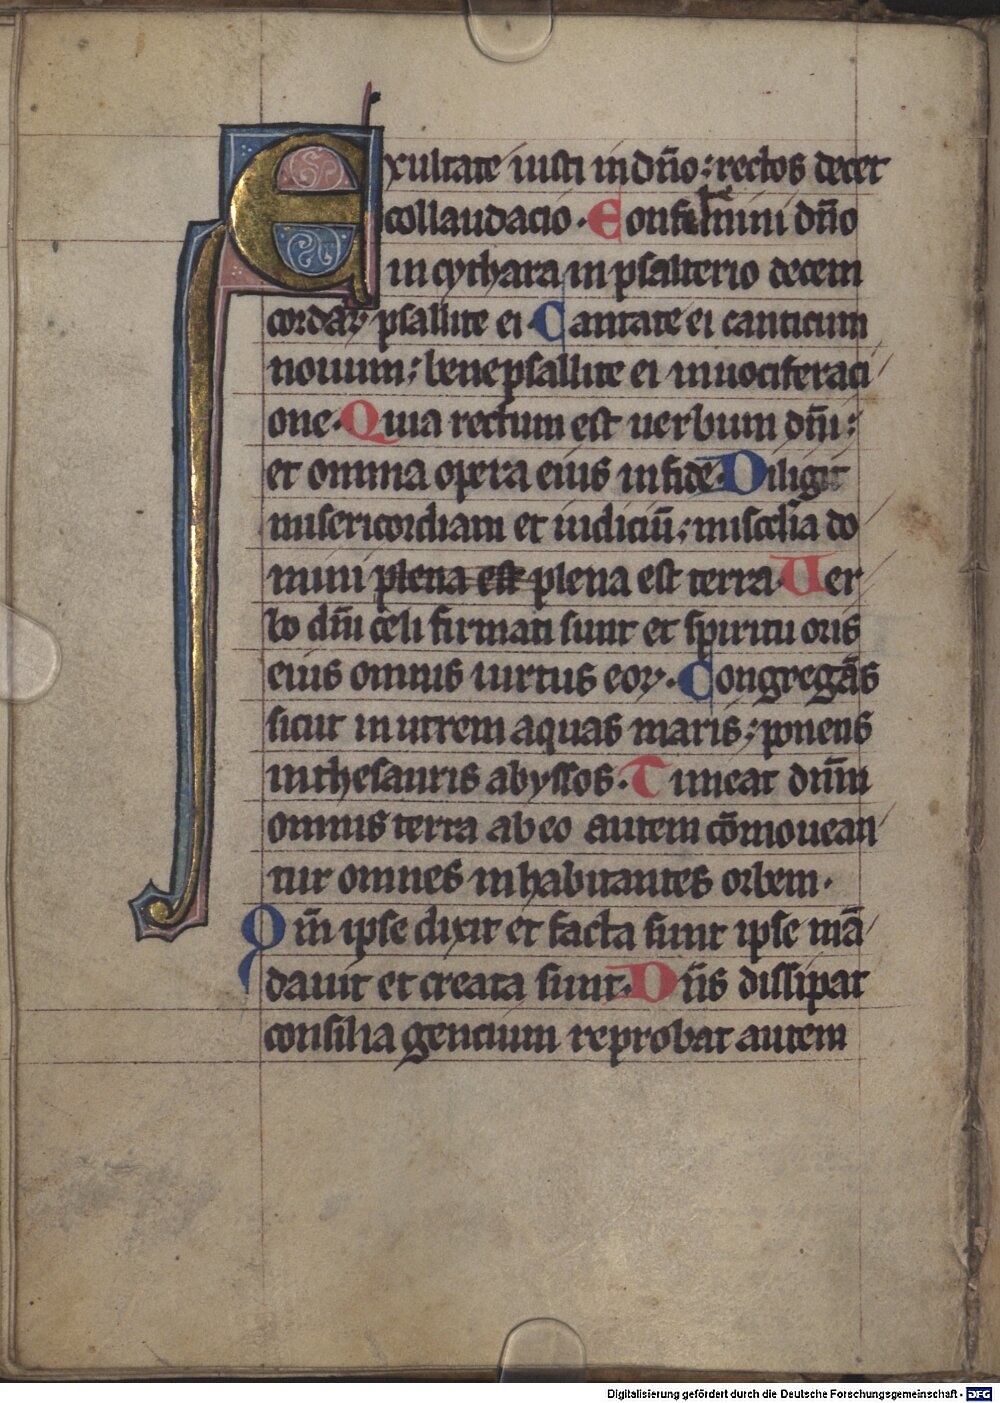 Exultate iusti in dn̄o: rectos decet
collaudacio. Confitemini dn̄o
in cythara in psalterio decem
cordaꝝ psallite ei. Cantate ei canticum
nouum: bene psallite ei in uociferaci
one. Quia rectum est uerbum dn̄i:
et omnia opera eius in fide. Diligit
misericordiam et iudiciū: misc̄dia do
mini plena est plena est terra. Uer
bo dn̄i celi firmati sunt et spiritu oris
eius omnis uirtus eoꝝ. Congregās
sicut in utrem aquas maris: ponens
in thesauris abyssos. Timeat dn̄m
omnis terra ab eo autem cōmouean
tur omnes inhabitantes orbem.
Qm̄ ipse dixit et facta sunt ipse mā
dauit et creata sunt. Dn̄s dissipat
consilia gencium reprobat autem
Digitalisierung gefördert durch die Deutsche Forschungsgemeinschaft - DFG